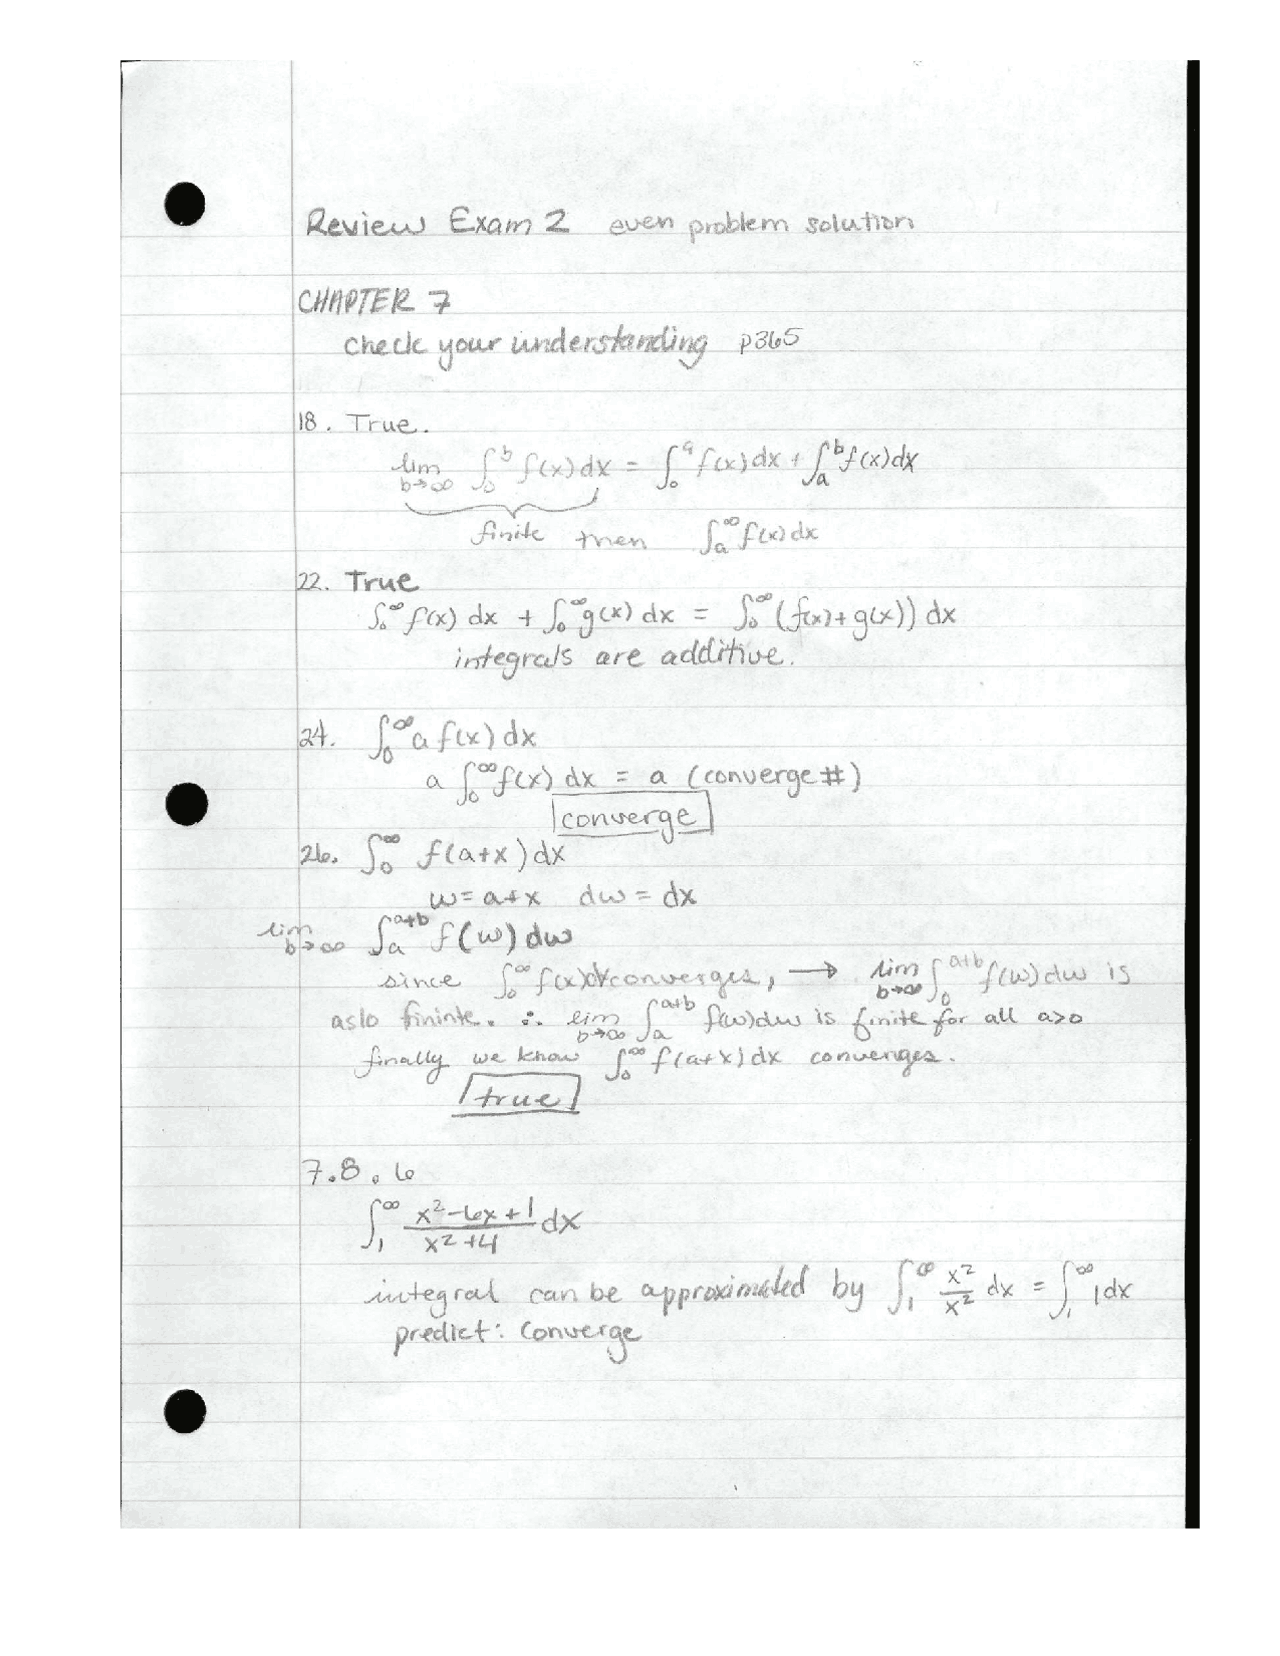 Review Exam 2 even problem solution
CHAPTER 7
check your understanding p365
18. True.
lim b→∞ ∫₀ᵇ f(x)dx = ∫₀ᵃ f(x)dx + ∫ₐᵇ f(x)dx
finite then ∫ₐ^∞ f(x)dx
22. True
∫₀^∞ f(x) dx + ∫₀^∞ g(x) dx = ∫₀^∞ (f(x)+g(x)) dx
integrals are additive.
24. ∫₀^∞ a f(x) dx
a ∫₀^∞ f(x) dx = a (converge #)
converge
26. ∫₀^∞ f(a+x) dx
w = a+x dw = dx
lim b→∞ ∫ₐ^(a+b) f(w) dw
since ∫₀^∞ f(x)dx converges, → lim b→∞ ∫₀^(a+b) f(w) dw is
aslo fininte. ∴ lim b→∞ ∫ₐ^(a+b) f(w)dw is finite for all a>0
finally we know ∫₀^∞ f(a+x) dx converges.
true
7.8.6
∫₁^∞ (x²-6x+1)/(x²+4) dx
integral can be approximated by ∫₁^∞ x²/x² dx = ∫₁^∞ 1dx
predict: Converge